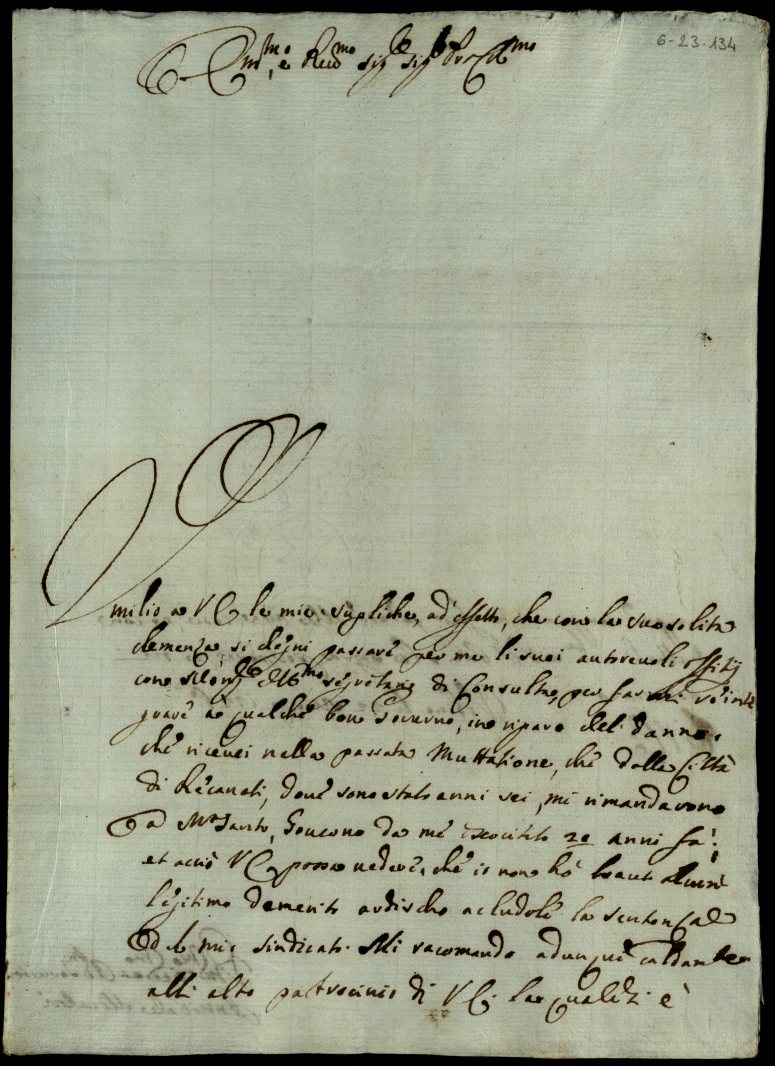 6-23-134
Em.mo e Rev.mo sig.r sig.r
milio a VE le mie supliche, ad effetto, che con la sua solita
clemenza, si degni passare per me li suoi autorevoli offitij
con segretario di Consulta, per farmi reinte
grare à qualche bon Governo, in riparo del danno,
che ricevei nella passata Muttatione, che dalla Città
di Recanati, dove sono stato anni sei, mi rimandavono
a M.te Santo, Governo da me esercitato 20 anni fa;
et acciò VE possa vedere, che io non hò havuto alcun
legitimo demerito ardischo acludole la sentenza
del mio sindicato. Mi racomando adunque caldam.te
alli alto patrocinio di VE. la quale è